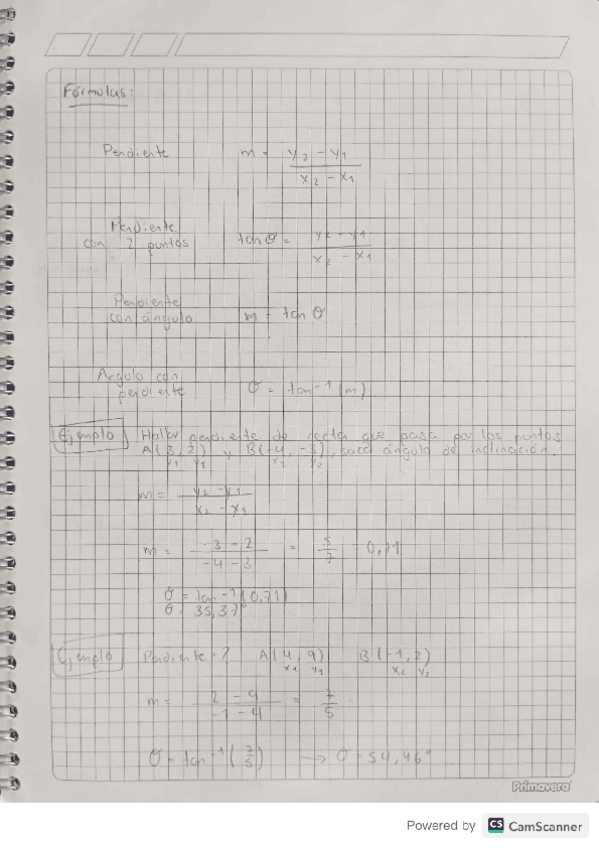 Fórmulas:
Pendiente m = y2 - y1 / x2 - x1
Pendiente
con 2 puntos tan θ = y2 - y1 / x2 - x1
Pendiente
con ángulo m = tan θ
Angulo con
pendiente θ = tan⁻¹ (m)
Ejemplo Hallar pendiente de recta que pasa por los puntos
A(3, 2) y B(-4, -3), saca ángulo de inclinación.
x1 y1 x2 y2
m = y2 - y1 / x2 - x1
m = -3 - 2 / -4 - 3 = 5/7 = 0,71
θ = tan⁻¹(0,71)
θ = 35,37°
Ejemplo Pendiente = ? A(4, 9) B(-1, 2)
x1 y1 x2 y2
m = 2 - 9 / -1 - 4 = 7/5
θ = tan⁻¹(7/5) → θ = 54,46°
Primavera
Powered by CS CamScanner